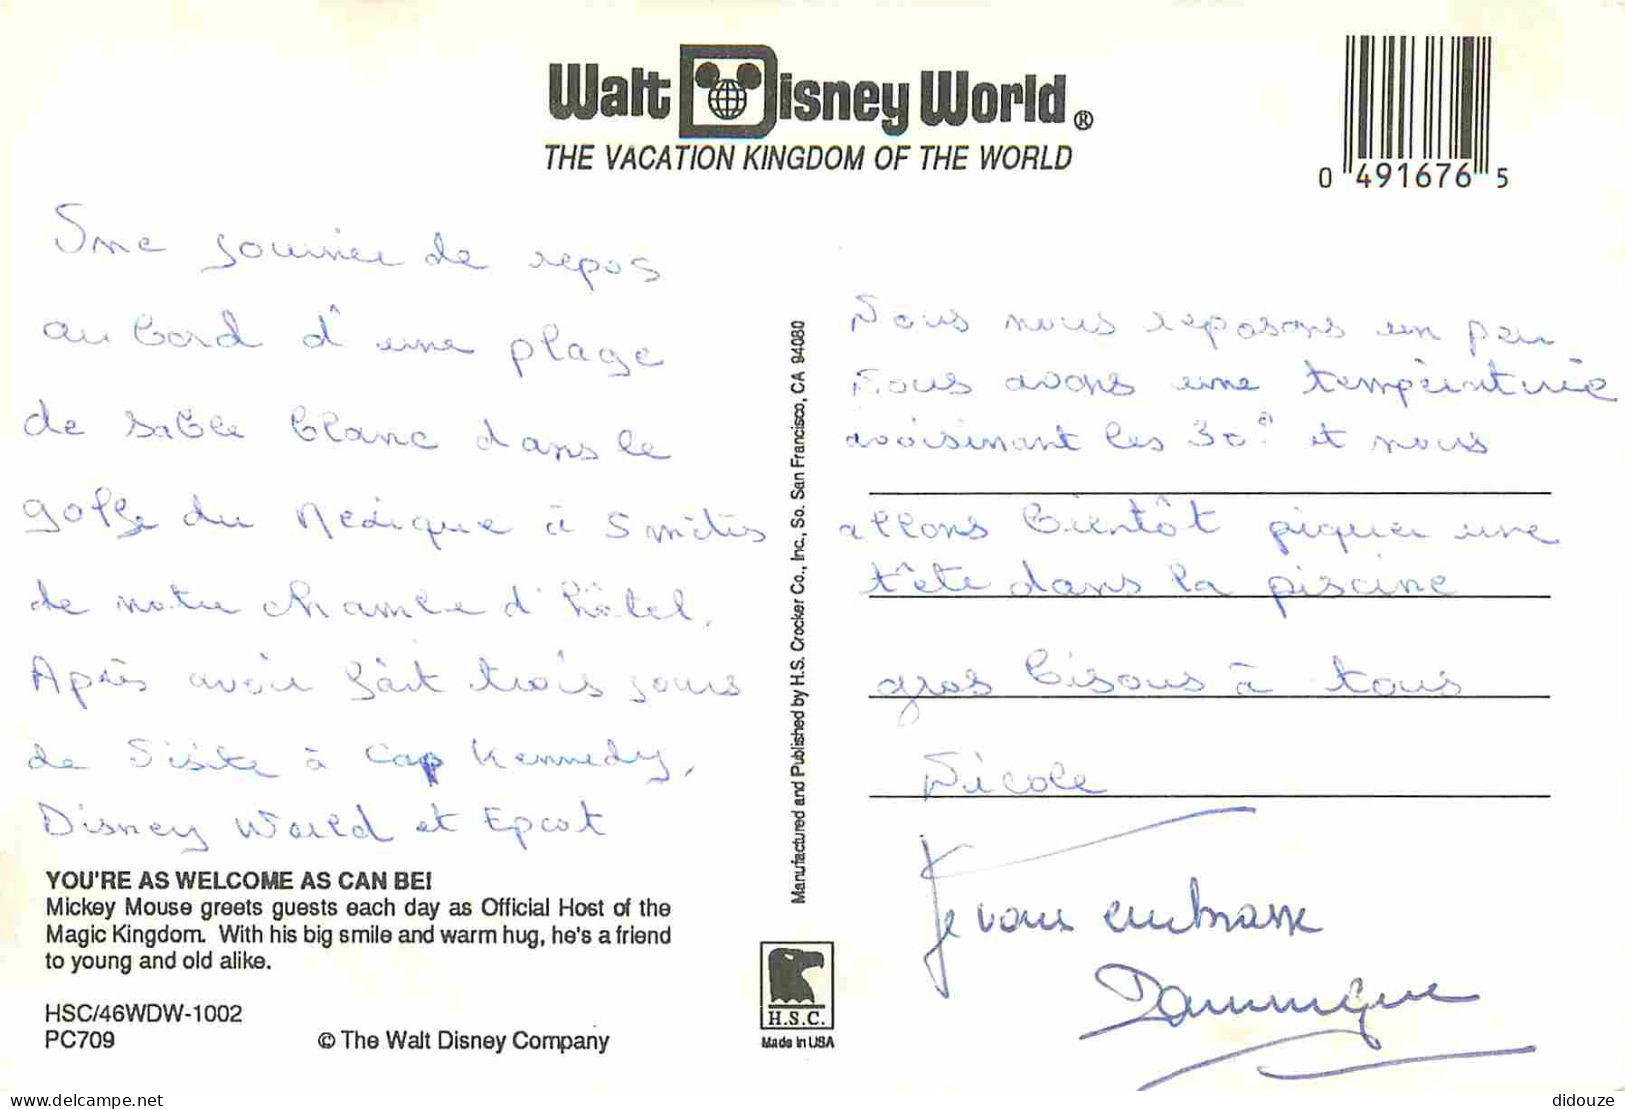 Walt Disney World ®
THE VACATION KINGDOM OF THE WORLD
0 491676 5
Une journée de repos
au bord d'une plage
de sable blanc dans le
golfe du Mexique à 5 mètres
de notre chambre d'hôtel.
Après avoir fait trois jours
de visite à Cap Kennedy,
Disney World et Epcot
YOU'RE AS WELCOME AS CAN BE!
Mickey Mouse greets guests each day as Official Host of the
Magic Kingdom. With his big smile and warm hug, he's a friend
to young and old alike.
HSC/46WDW-1002
PC709
© The Walt Disney Company
Manufactured and Published by H.S. Crocker Co., Inc., So. San Francisco, CA 94080
H.S.C.
Made In USA
Nous nous reposons un peu
Nous avons une température
avoisinant les 30° et nous
allons bientôt piquer une
tête dans la piscine
gros bisous à tous
Nicole
Je vous embrasse
Dominique
delcampe.net
didouze